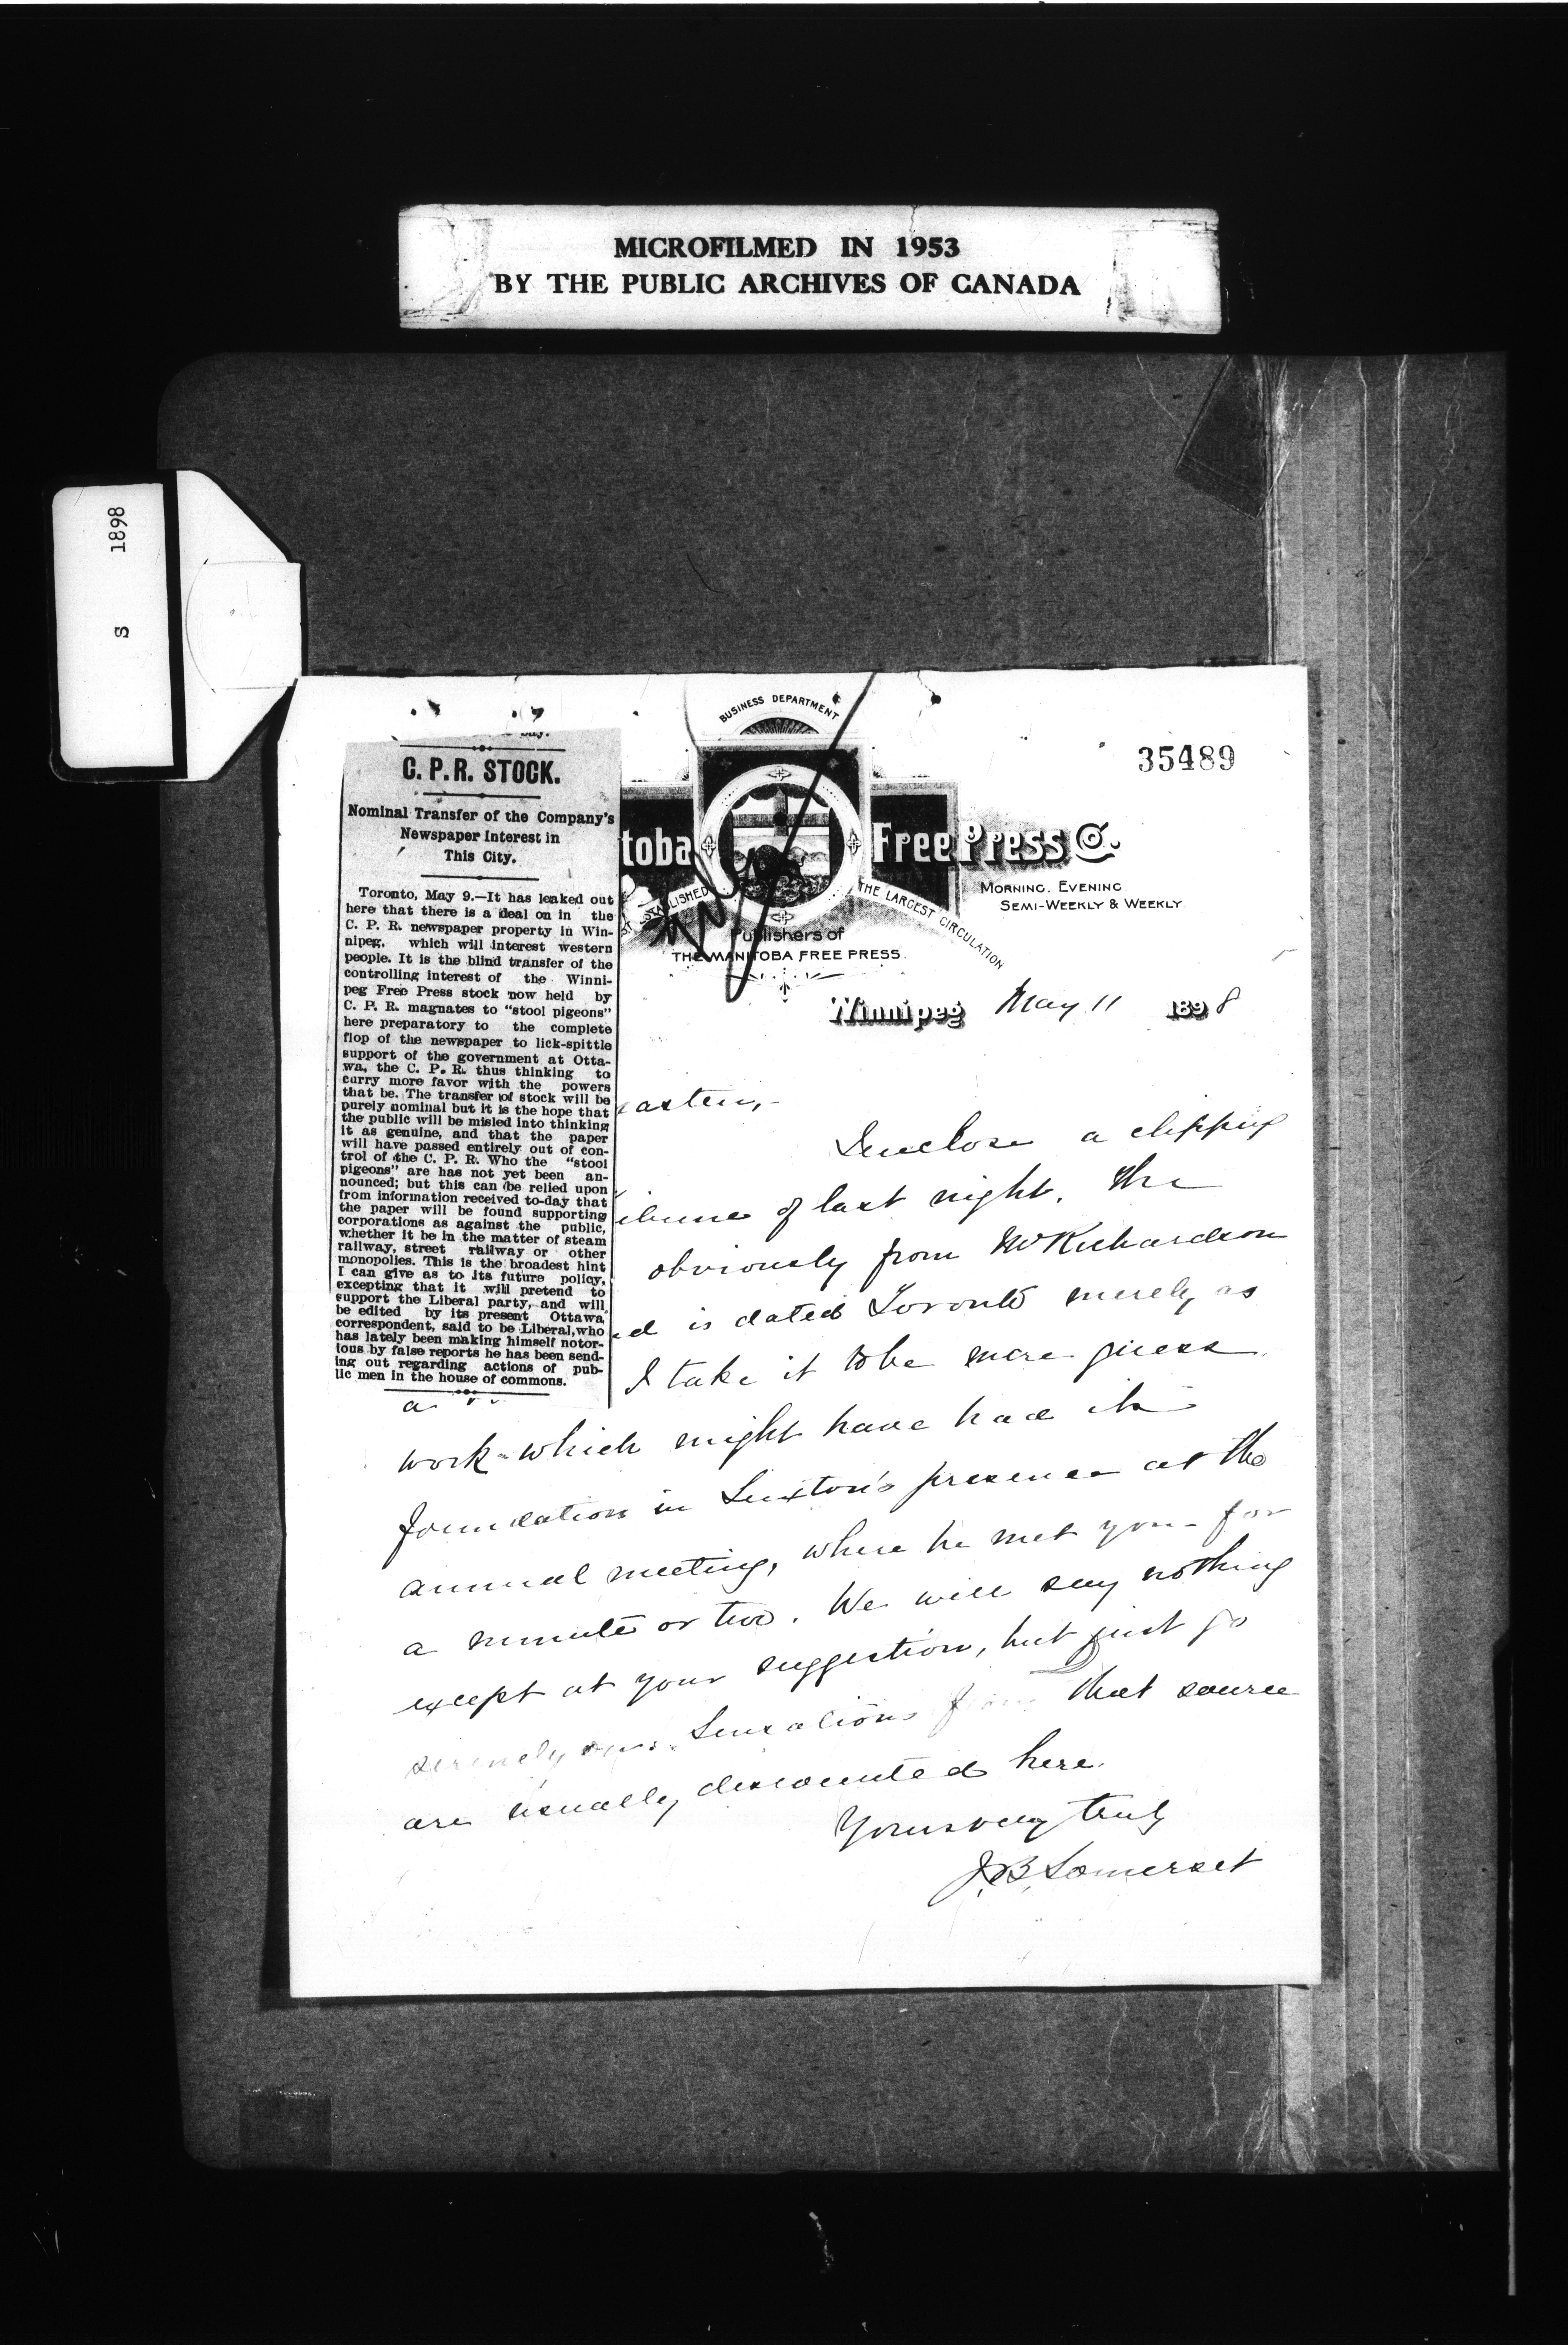 MICROFILMED IN 1953
BY THE PUBLIC ARCHIVES OF CANADA
S 1898
35489
BUSINESS DEPARTMENT
toba Free Press Co.
ESTABLISHED
THE LARGEST CIRCULATION
MORNING, EVENING
SEMI-WEEKLY & WEEKLY
Publishers of
THE MANITOBA FREE PRESS.
Winnipeg May 11 1898
C. P. R. STOCK.
Nominal Transfer of the Company's
Newspaper Interest in
This City.
Toronto, May 9.—It has leaked out
here that there is a deal on in the
C. P. R. newspaper property in Win-
nipeg, which will interest western
people. It is the blind transfer of the
controlling interest of the Winni-
peg Free Press stock now held by
C. P. R. magnates to "stool pigeons"
here preparatory to the complete
flop of the newspaper to lick-spittle
support of the government at Otta-
wa, the C. P. R. thus thinking to
curry more favor with the powers
that be. The transfer of stock will be
purely nominal but it is the hope that
the public will be misled into thinking
it as genuine, and that the paper
will have passed entirely out of con-
trol of the C. P. R. Who the "stool
pigeons" are has not yet been an-
nounced; but this can be relied upon
from information received to-day that
the paper will be found supporting
corporations as against the public,
whether it be in the matter of steam
railway, street railway or other
monopolies. This is the broadest hint
I can give as to its future policy,
excepting that it will pretend to
support the Liberal party, and will
be edited by its present Ottawa
correspondent, said to be Liberal, who
has lately been making himself notor-
ious by false reports he has been send-
ing out regarding actions of pub-
lic men in the house of commons.
I enclose a clipping
of last night. The
obviously from Mr Richardson
is dated Toronto merely as
a
I take it to be mere guess
work - which might have had its
foundation in Luxton's presence at the
annual meeting, where he met you for
a minute or two. We will say nothing
except at your suggestion, but just go
serenely Sensations from that source
are usually discounted here.
Yours very truly
J. B. Somerset